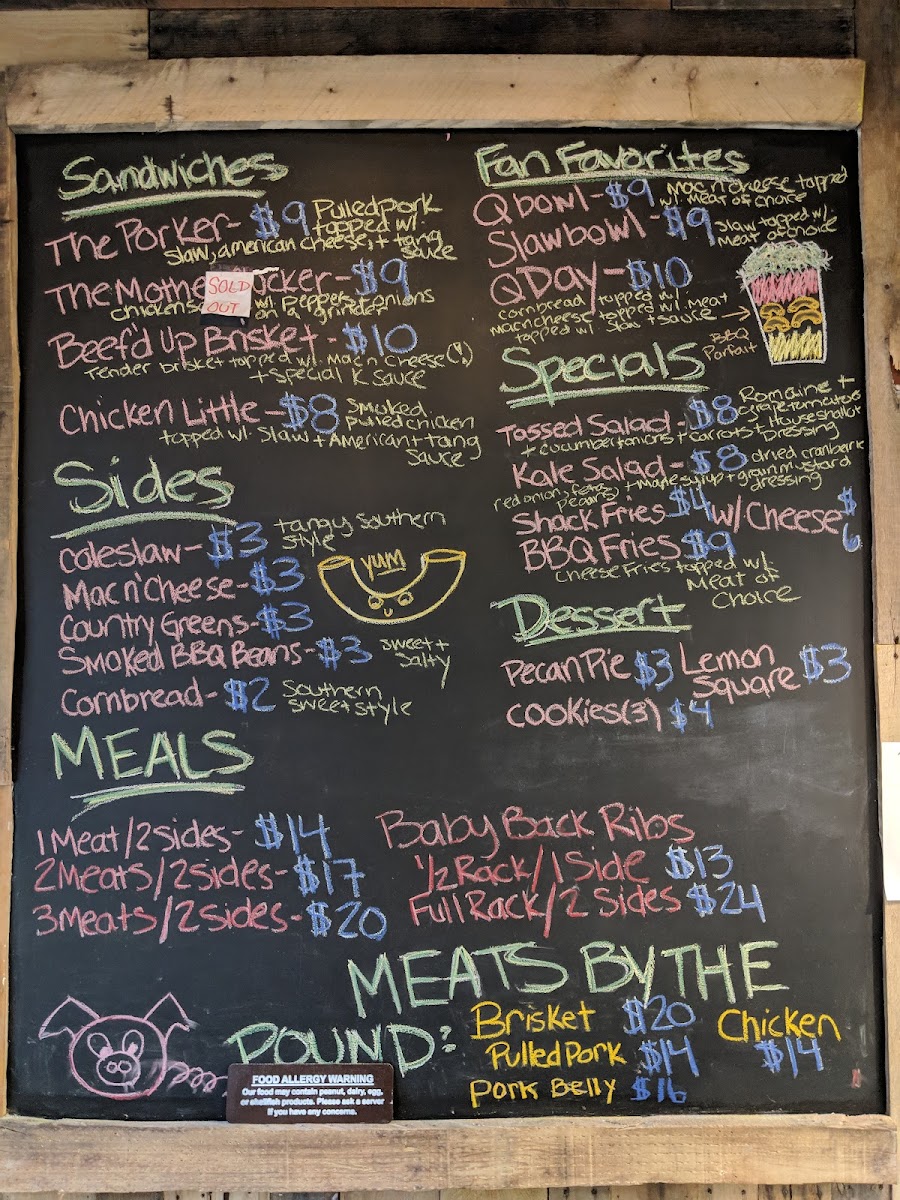 Sandwiches
The Porker- $9 Pulled pork
topped w/.
slaw, american cheese, + tang
sauce
The Mothe cker - $9
SOLD
OUT
chicken s w/. Peppers + onions
on a grinder
Beef'd Up Brisket - $10
Tender brisket topped w/. Mac n' Cheese (!)
+ Special K Sauce
Chicken Little - $8 Smoked
pulled chicken
topped w/. slaw + American + tang
sauce
Sides
coleslaw- $3 tangy southern
style
Mac n' Cheese- $3
yum
Country Greens- $3
Smoked BBQ Beans- $3 sweet +
salty
Cornbread- $2 Southern
sweet style
MEALS
1 Meat/2 sides- $14
2 Meats/2 sides- $17
3 Meats/2 sides- $20
Baby Back Ribs
1/2 Rack/1 Side $13
Full Rack/2 Sides $24
Fan Favorites
Q bowl- $9 Mac n' cheese topped
w/. meat of choice
Slaw bowl- $9 Slaw topped w/.
Meat of choice
Q Day- $10
cornbread topped w/
mac n cheese topped w/. meat
topped w/. slaw + sauce →
BBQ
Parfait
Specials
Tossed Salad- $8 Romaine +
grape tomatoes
+ cucumber + onions + carrots + House shallot
Dressing
Kale Salad- $8 dried cranberri
red onion, feta, + maple syrup + grain mustard
pecans dressing
Shack Fries $4 w/ Cheese $
6
BBQ Fries $9
Cheese Fries topped w/.
Meat of
Choice
Dessert
Pecan Pie $3 Lemon
Square $3
cookies(3) $4
MEATS BY THE
POUND:
Brisket $20 Chicken
Pulled Pork $14 $14
Pork Belly $16
FOOD ALLERGY WARNING
Our food may contain peanut, dairy, egg,
or shellfish products. Please ask a server
if you have any concerns.